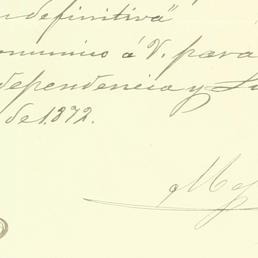 definitiva"
comunico á V. para
dependencia y
de 1872.